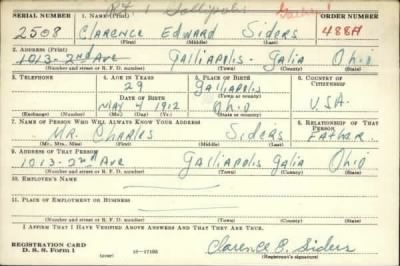 Rt 1 Gallipolis
SERIAL NUMBER 1. NAME (Print) ORDER NUMBER
2508 Clarence Edward Siders 488A
(First) (Middle) (Last)
2. ADDRESS (Print)
1013-2nd Ave Galliapolis - Galia Ohio
(Number and street or R. F. D. number) (Town) (County) (State)
3. TELEPHONE 4. AGE IN YEARS 5. PLACE OF BIRTH 6. COUNTRY OF CITIZENSHIP
29 Galliapolis
(Town) (County)
DATE OF BIRTH
May 4 1912 Ohio U.S.A.
(Exchange) (Number) (Mo.) (Day) (Yr.) (State or country)
7. NAME OF PERSON WHO WILL ALWAYS KNOW YOUR ADDRESS 8. RELATIONSHIP OF THAT PERSON
Mr. Charles Siders Father
(Mr., Mrs., Miss) (First) (Middle) (Last)
9. ADDRESS OF THAT PERSON
1013-2nd Ave Galliapolis Galia Ohio
(Number and street or R. F. D. number) (Town) (County) (State)
10. EMPLOYER'S NAME
11. PLACE OF EMPLOYMENT OR BUSINESS
(Number and street or R. F. D. number) (Town) (County) (State)
I AFFIRM THAT I HAVE VERIFIED ABOVE ANSWERS AND THAT THEY ARE TRUE.
REGISTRATION CARD
D. S. S. Form 1 (over) 16-17105 Clarence E. Siders
(Registrant's signature)